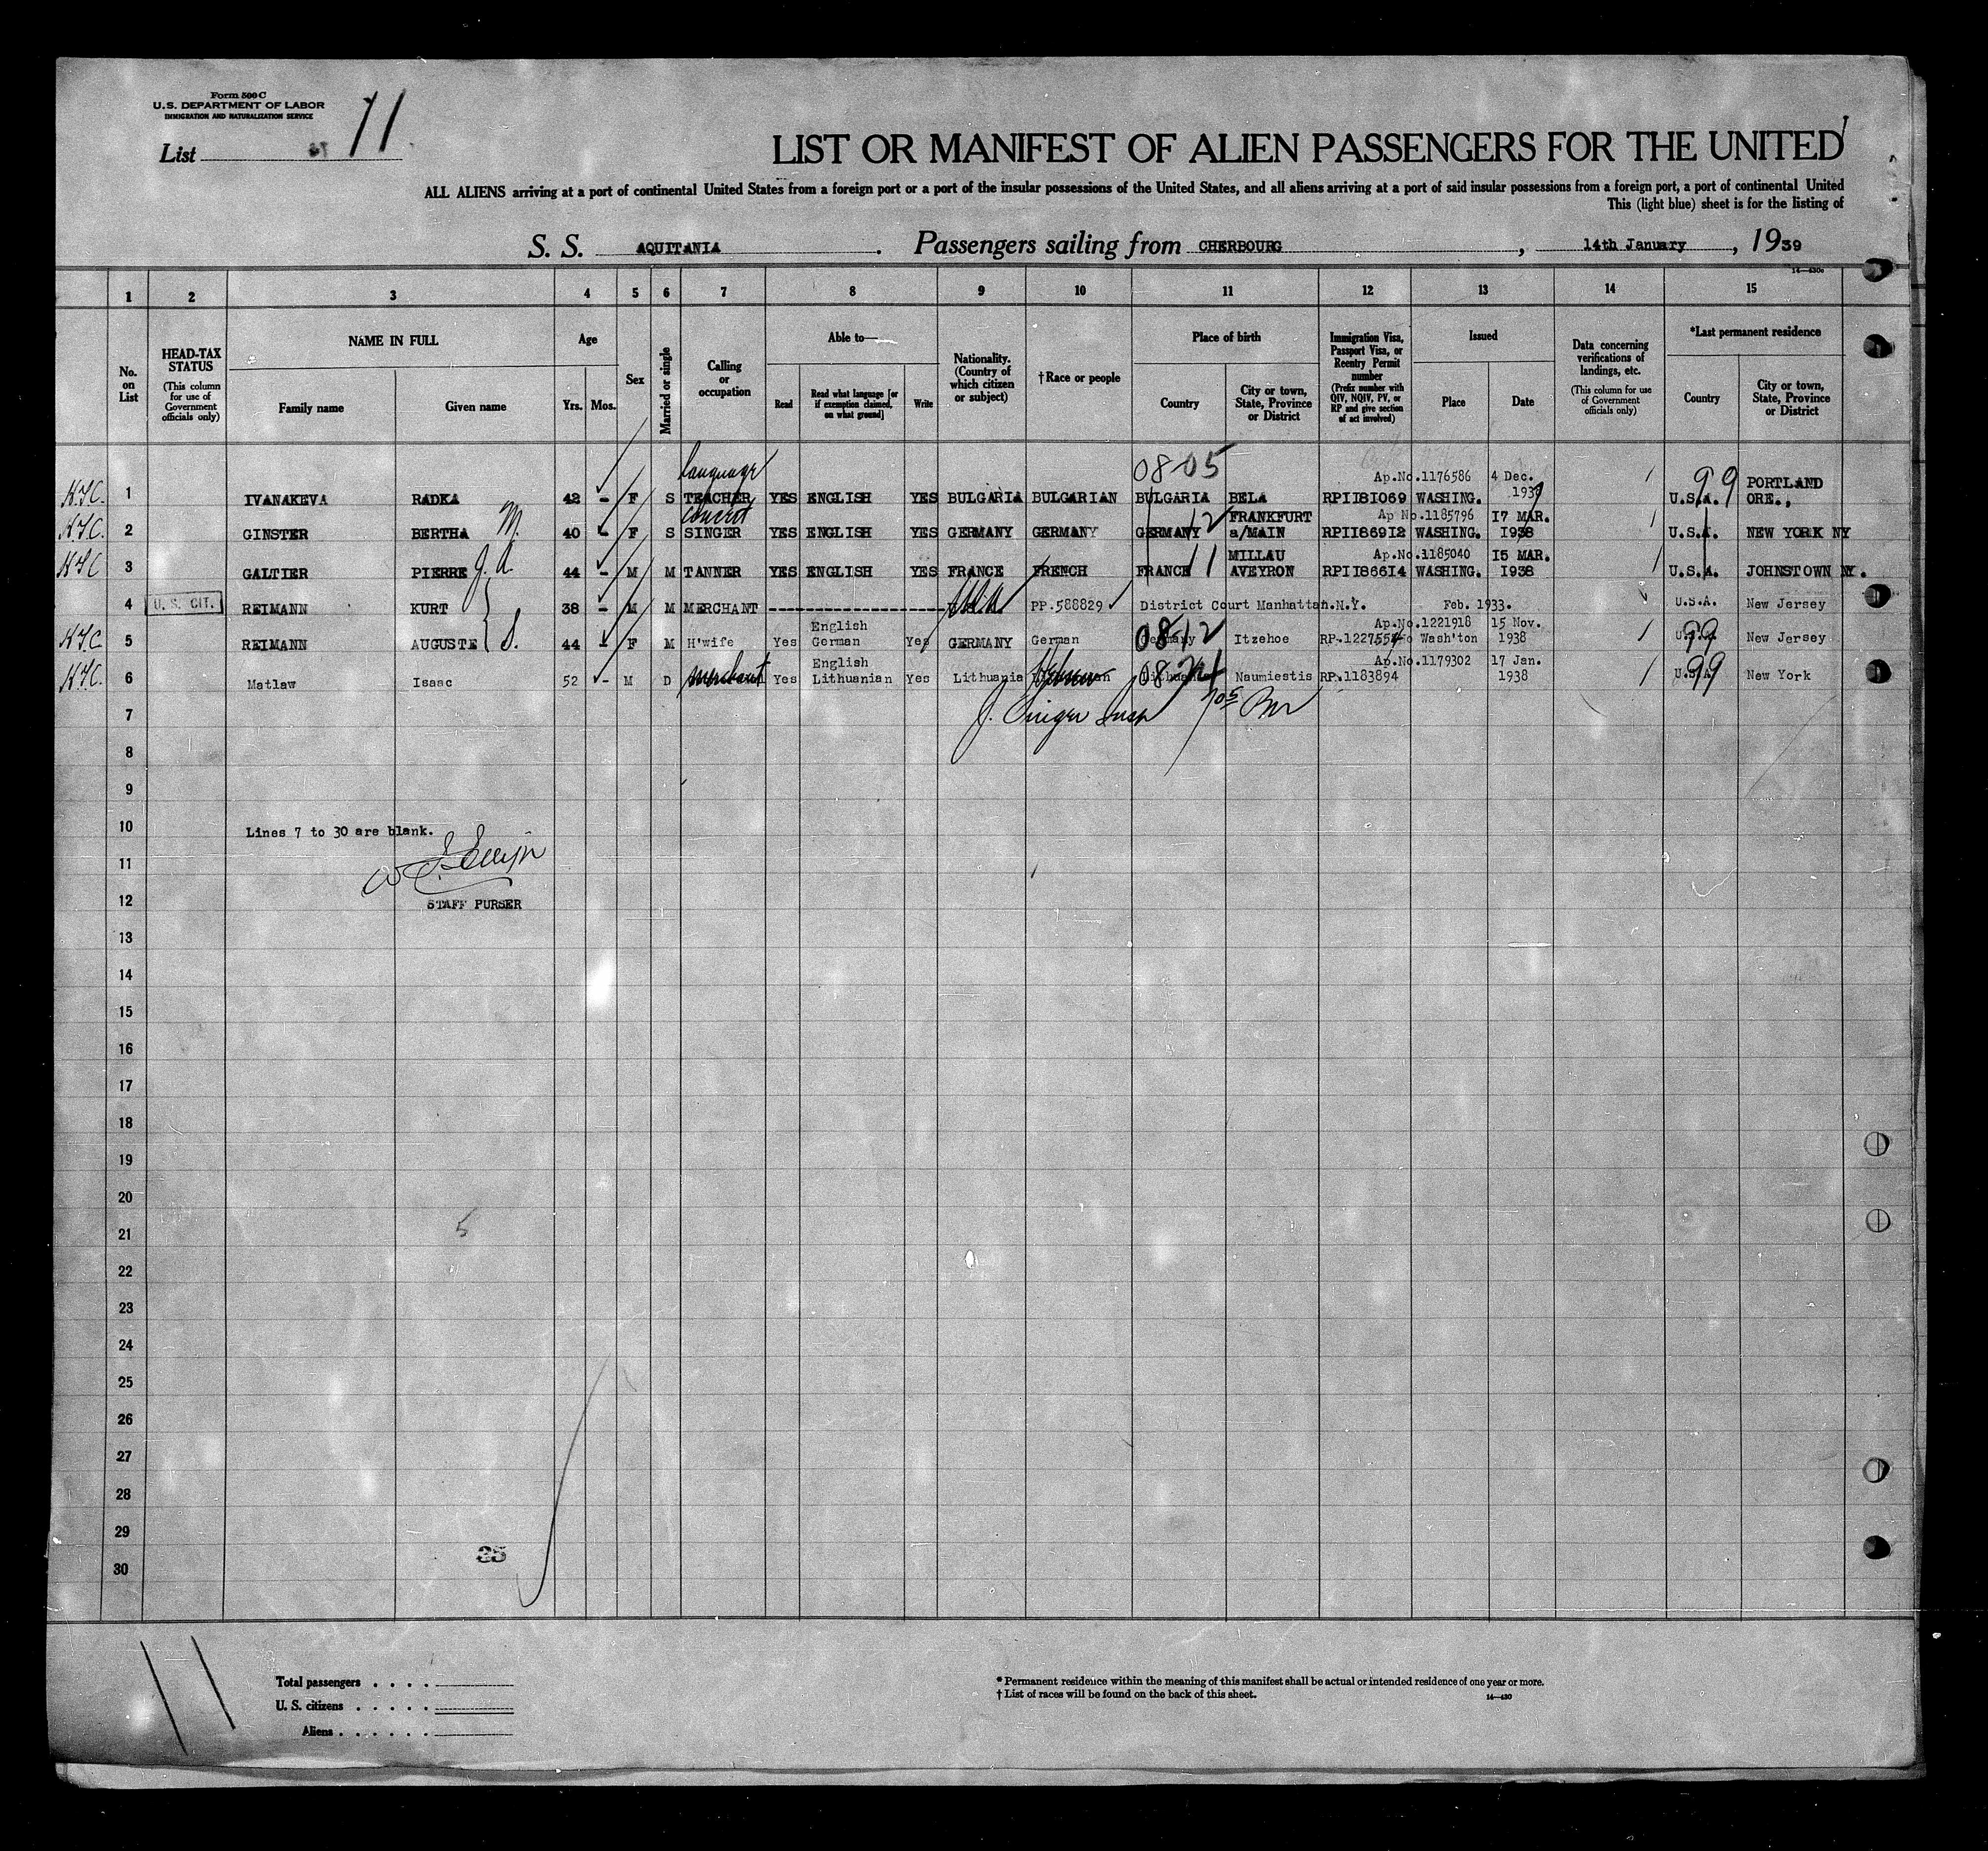 Form 500 C
U.S. DEPARTMENT OF LABOR
IMMIGRATION AND NATURALIZATION SERVICE
List 11
LIST OR MANIFEST OF ALIEN PASSENGERS FOR THE UNITED
ALL ALIENS arriving at a port of continental United States from a foreign port or a port of the insular possessions of the United States, and all aliens arriving at a port of said insular possessions from a foreign port, a port of continental United
This (light blue) sheet is for the listing of
S. S. AQUITANIA. Passengers sailing from CHERBOURG, 14th January, 1939
14—430c
1 2 3 4 5 6 7 8 9 10 11 12 13 14 15
No. on List
HEAD-TAX STATUS
(This column for use of Government officials only)
NAME IN FULL
Family name
Given name
Age
Yrs.
Mos.
Sex
Married or single
Calling or occupation
Able to—
Read
Read what language [or if exemption claimed, on what ground]
Write
Nationality. (Country of which citizen or subject)
† Race or people
Place of birth
Country
City or town, State, Province or District
Immigration Visa, Passport Visa, or Reentry Permit number
(Prefix number with QIV, NQIV, PV, or RP and give section of act involved)
Issued
Place
Date
Data concerning verifications of landings, etc.
(This column for use of Government officials only)
*Last permanent residence
Country
City or town, State, Province or District
language 08-05 Ap.No.1176586 4 Dec. 99 PORTLAND
1 IVANAKEVA RADKA 42 - F S TEACHER YES ENGLISH YES BULGARIA BULGARIAN BULGARIA BELA RPII8I069 WASHING. U.S.A. ORE.,
concert 12 FRANKFURT Ap No.1185796 I7 MAR.
2 GINSTER BERTHA M. 40 - F S SINGER YES ENGLISH YES GERMANY GERMANY GERMANY a/MAIN RPII869I2 WASHING. I938 U.S.A. NEW YORK NY
11 MILLAU Ap.No.1185040 I5 MAR.
3 GALTIER PIERRE J. A. 44 - M M TANNER YES ENGLISH YES FRANCE FRENCH FRANCE AVEYRON RPII866I4 WASHING. I938 U.S.A. JOHNSTOWN NY.
4 U. S. CIT. REIMANN KURT 38 - M M MERCHANT PP.588829 District Court Manhattan.N.Y. Feb. 1933. U.S.A. New Jersey
English Ap.No.1221918 15 Nov.
5 REIMANN AUGUSTE S. 44 - F M H'wife Yes German Yes GERMANY German 08-12 Itzehoe Wash'ton 1938 99 New Jersey
English Ap.No.1179302 17 Jan.
6 Matlaw Isaac 52 - M D merchant Yes Lithuanian Yes Lithuania Hebrew 08 24 Naumiestis RP.1183894 1938 99 New York
7
8
9
10 Lines 7 to 30 are blank.
11
12 STAFF PURSER
13
14
15
16
17
18
19
20
21 5
22
23
24
25
26
27
28
29
30 35
11
Total passengers
U. S. citizens
Aliens
* Permanent residence within the meaning of this manifest shall be actual or intended residence of one year or more.
† List of races will be found on the back of this sheet.
14—430